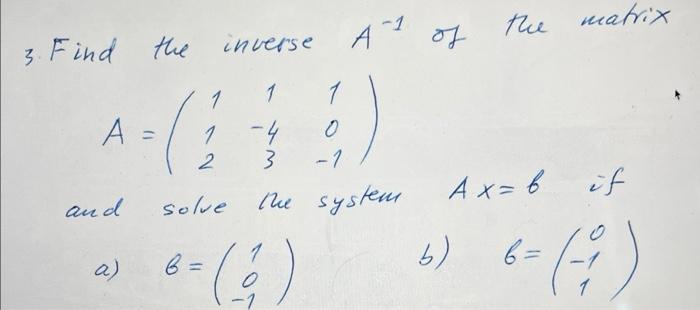 3. Find the inverse A⁻¹ of the matrix
A = ( 1 1 1
1 -4 0
2 3 -1 )
and solve the system Ax = b if
a) b = ( 1
0
-1 )
b) b = ( 0
-1
1 )